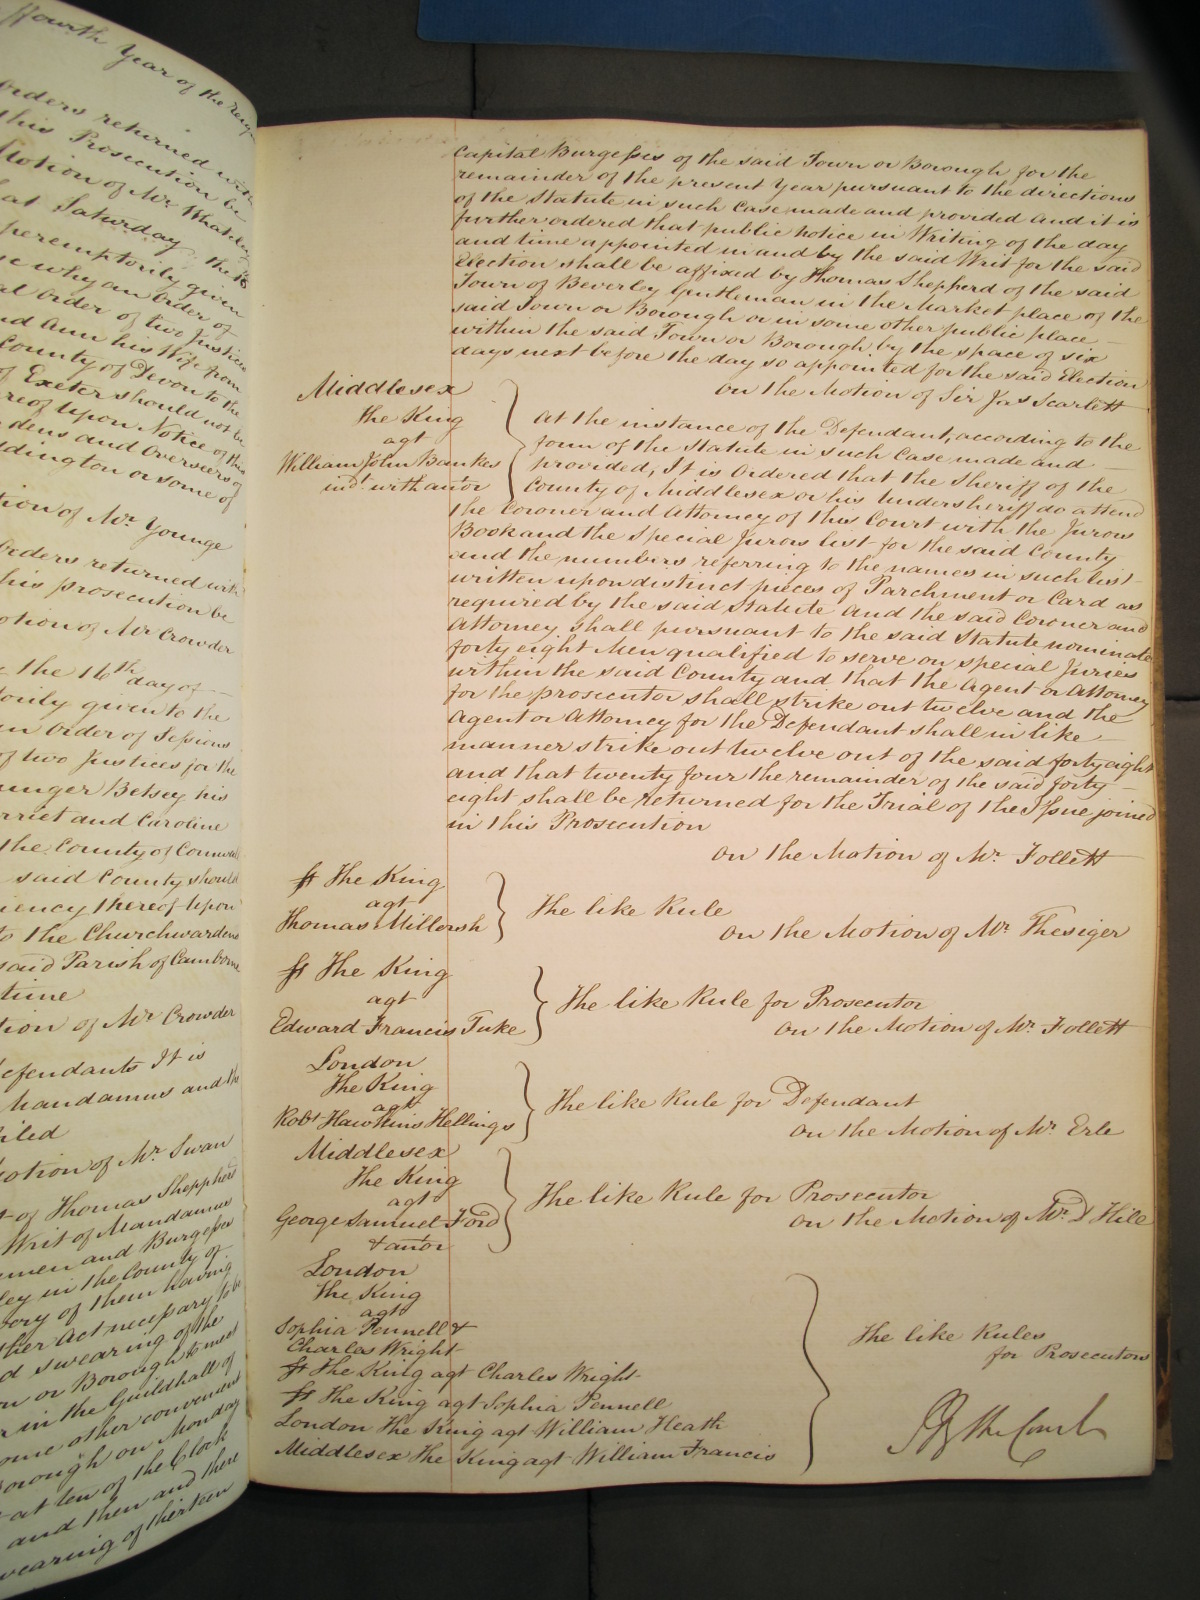 fourth Year of the reign
orders returned with
this Prosecution be
Motion of Mr. Whateley
at Saturday the 16
peremptorily given
why an Order of
al order of two Justices
nd Ann his Wife from
County of Devon to the
of Exeter should not be
reof upon Notice of this
dens and Overseers of
dington or some of
tion of Mr. Younge
Orders returned with
his prosecution be
otion of Mr Crowder
the 16th day of
torily given to the
an order of Sessions
of two Justices for the
unger Betsey his
rriet and Caroline
the County of Cornwall
said County should
iency thereof upon
to the Churchwardens
said Parish of Camborne
time
tion of Mr Crowder
efendants It is
handamus and the
iled
otion of Mr. Swan
t of Thomas Shepherd
Writ of Mandamus
men and Burgesses
ley in the County of
very of them having
ther Act necessary to be
d swearing of the
n or Borough to meet
r in the Guildhall of
ome other convenient
Borough on Monday
at ten of the Clock
and then and there
wearing of thirteen
Capital Burgesses of the said Town or Borough for the
remainder of the present Year pursuant to the directions
of the Statute in such Case made and provided And it is
further ordered that public notice in Writing of the day
and time appointed in and by the said Writ for the said
Election shall be affixed by Thomas Shepherd of the said
Town of Beverley Gentleman in the Market place of the
said Town or Borough or in some other public place
within the said Town or Borough by the space of six
days next before the day so appointed for the said Election
On the Motion of Sir Jas Scarlett
Middlesex
The King
agt
William John Bankes
indt. with anor
At the instance of the Defendant, according to the
form of the Statute in such Case made and
provided, It is Ordered that the Sheriff of the
County of Middlesex or his Undersheriff do attend
the Coroner and Attorney of this Court with the Jurors
Book and the Special Jurors list for the said County
and the numbers referring to the names in such list
written upon distinct pieces of Parchment or Card as
required by the said Statute And the said Coroner and
Attorney shall pursuant to the said Statute nominate
forty eight Men qualified to serve on special Juries
within the said County and that the Agent or Attorney
for the prosecutor shall strike out twelve and the
Agent or Attorney for the Defendant shall in like
manner strike out twelve out of the said forty eight
and that twenty four the remainder of the said forty
eight shall be returned for the Trial of the Issue joined
in this Prosecution
On the Motion of Mr. Follett
The King
agt
Thomas Millersh
The like Rule
On the Motion of Mr. Thesiger
The King
agt
Edward Francis Tuke
The like Rule for Prosecutor
On the Motion of Mr. Follett
London
The King
agt
Robt Hawkins Hellings
The like Rule for Defendant
On the Motion of Mr. Erle
Middlesex
The King
agt
George Samuel Ford
& anor
The like Rule for Prosecutor
On the Motion of Mr. D Hill
London
The King
agt
Sophia Pennell &
Charles Wright
The King agt Charles Wright
The King agt Sophia Pennell
London The King agt William Heath
Middlesex The King agt William Francis
The like Rules
for Prosecutors
By the Court